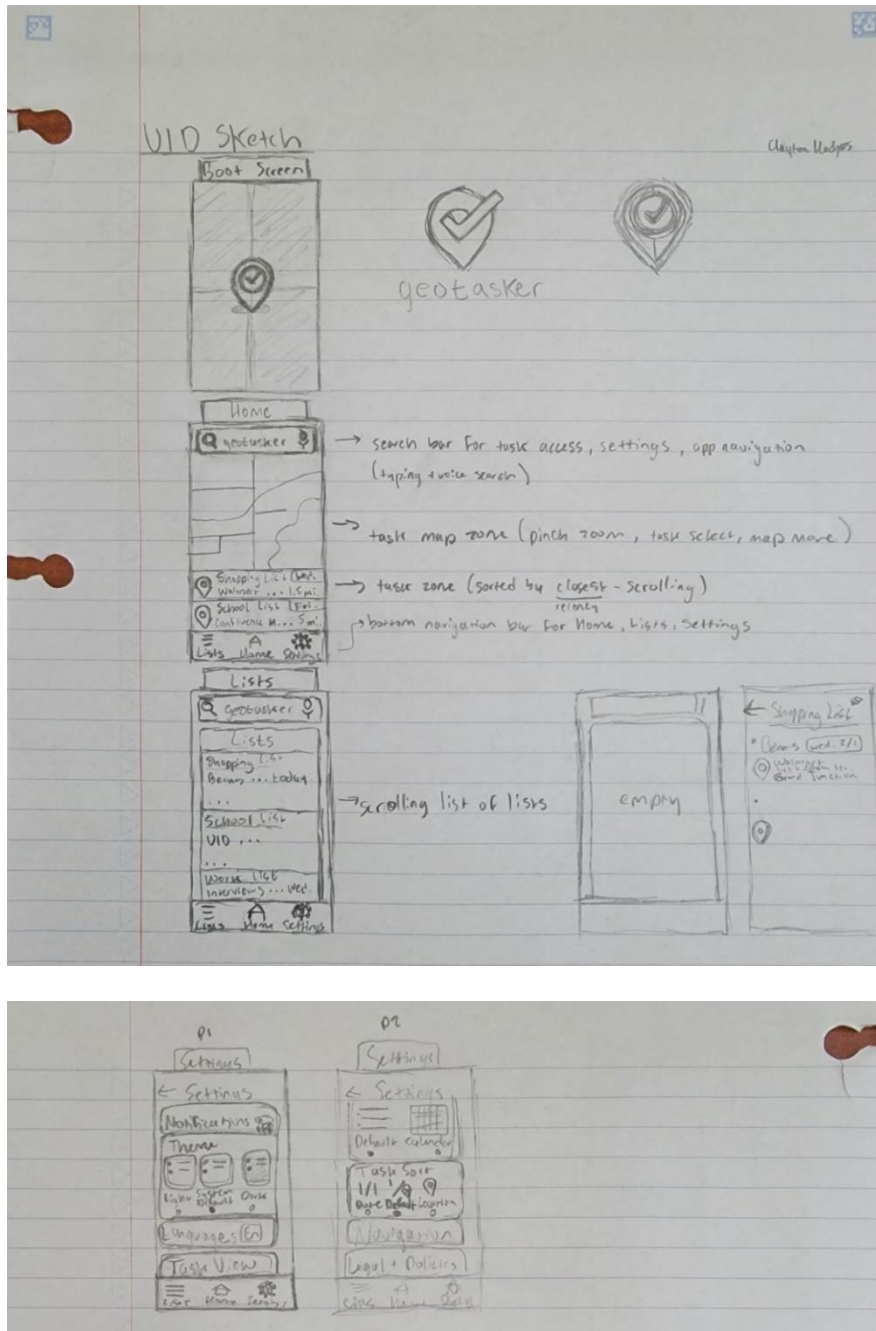 UID Sketch
Clayton
Boot Screen
geotasker
Home
geotasker
→ search bar for task access, settings, app navigation
(typing + voice search)
→ task map zone (pinch zoom, task select, map move)
Shopping List Wed.
Walmart ... 1.5 mi.
→ task zone (sorted by closest - scrolling)
recency
School List Fri.
Confluence H... 5 mi.
→ bottom navigation bar for Home, Lists, Settings
Lists Home Settings
Lists
geotasker
Lists
Shopping List
Beans ... today
...
→ scrolling list of lists
School List
UID ...
...
Work List
Interviews ... Wed.
Lists Home Settings
empty
← Shopping List
• Beans Wed. 2/1
Walmart
Grand Junction
•
P1
Settings
← Settings
Notifications
Theme
Light System Default Dark
Languages En
Task View
Lists Home Settings
P2
Settings
← Settings
Default Calendar
Task Sort
1/1 1/
Date Default Location
Navigation
Legal + Policies
Lists Home